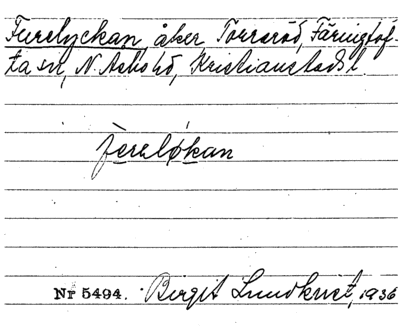 Furelyckan, åker, Torraröd, Färingtof-
ta sn, N. Åsbo hd, Kristianstads l.
fereløkan
Nr 5494. Birgit Lundkvist, 1936